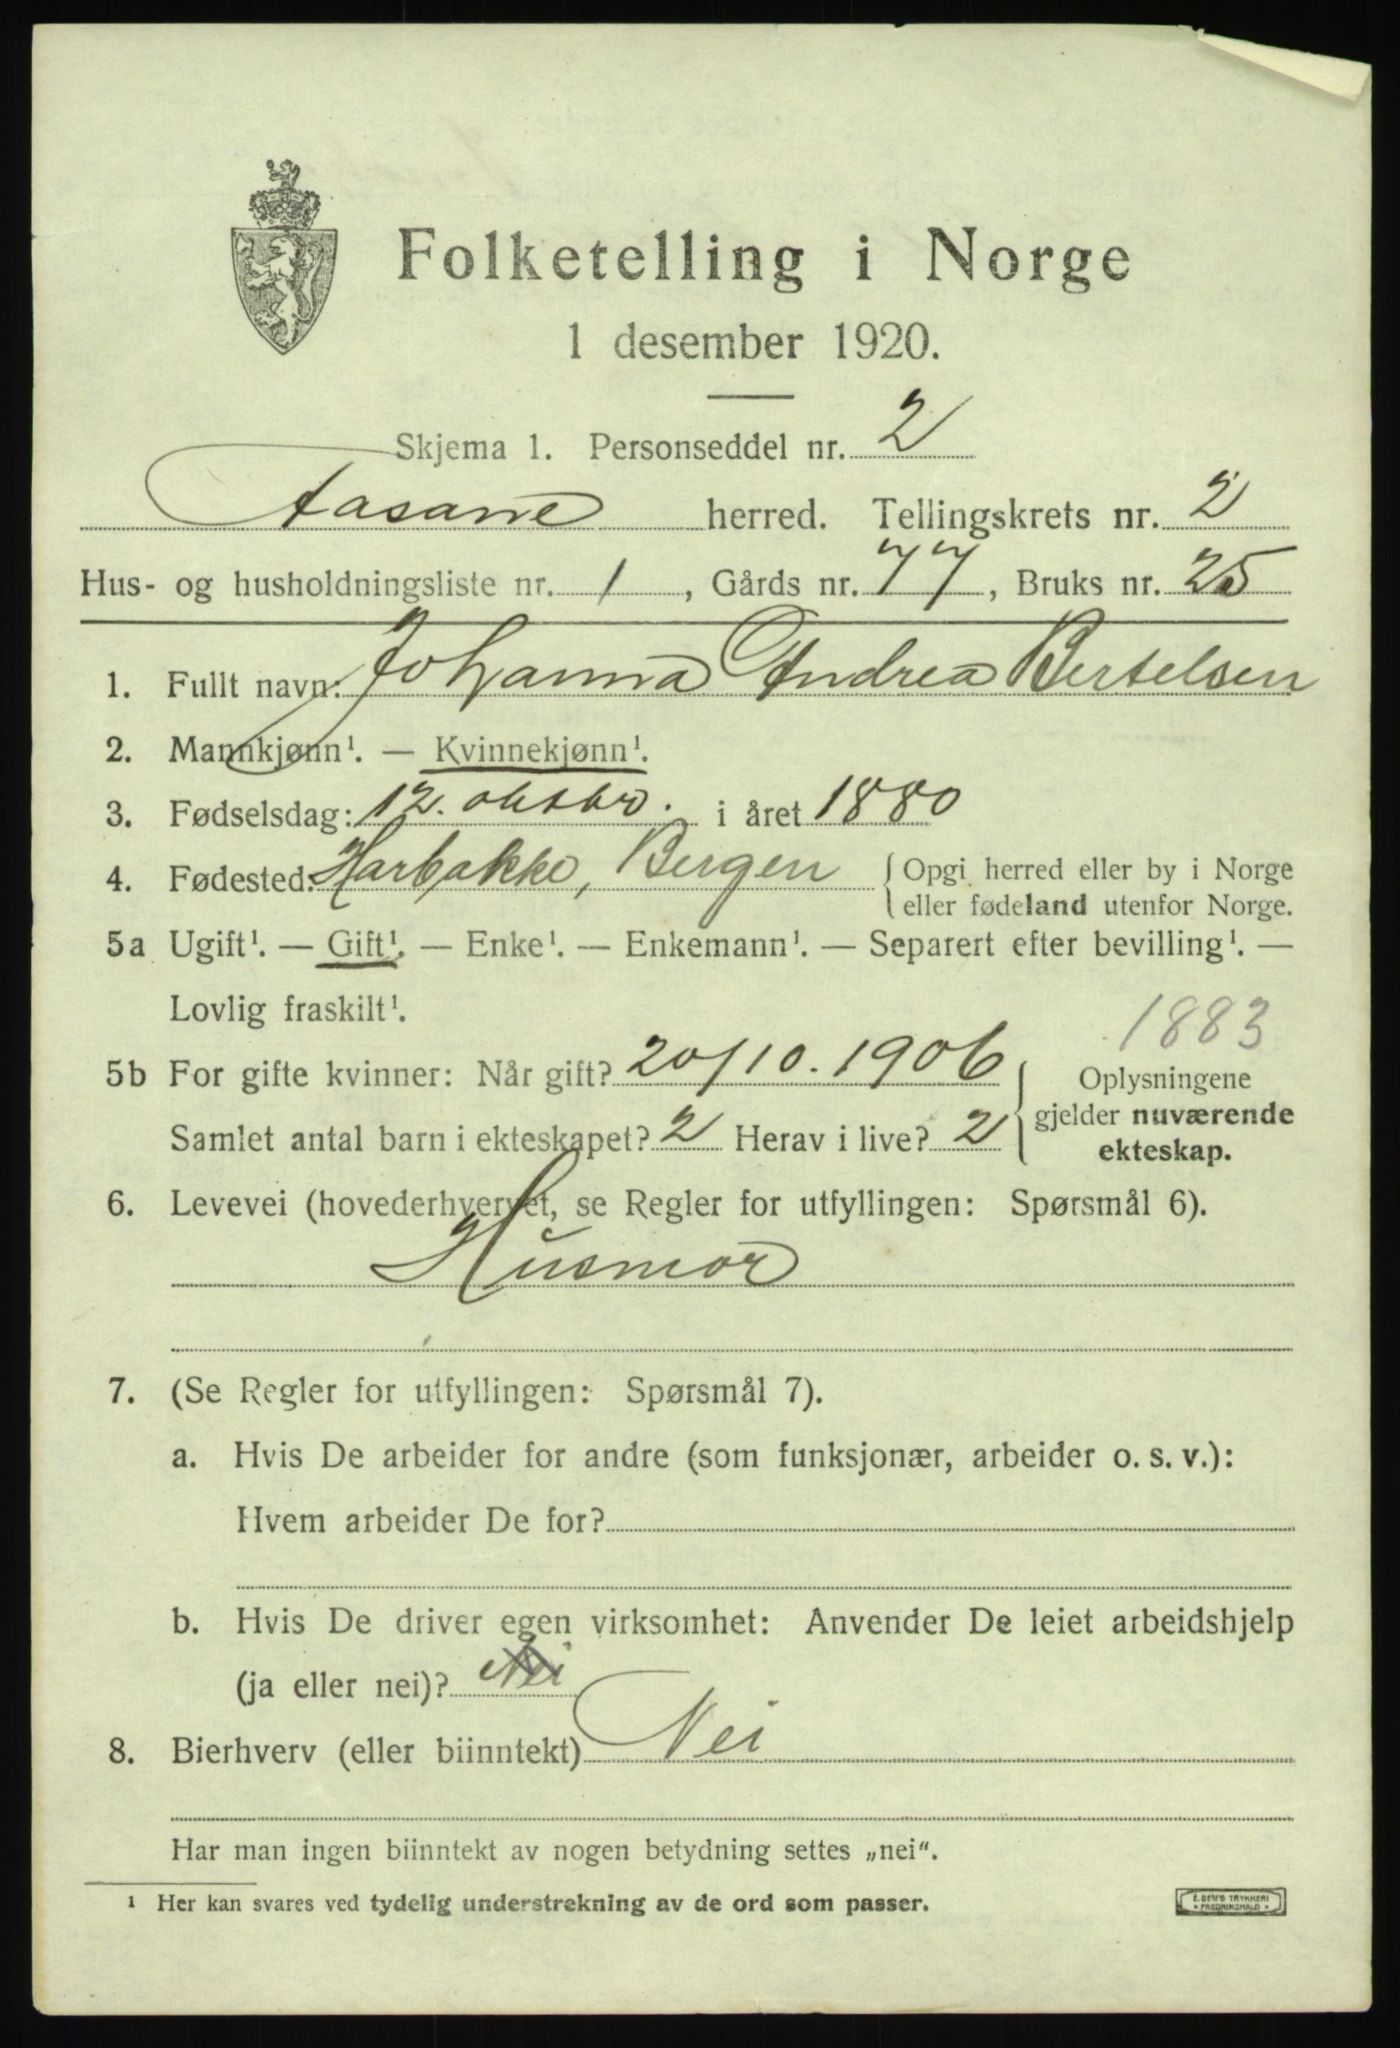 Folketelling i Norge
1 desember 1920.
Skjema 1. Personseddel nr. 2
Aasane herred. Tellingskrets nr. 2
Hus- og husholdningsliste nr. 1, Gårds nr. 77, Bruks nr. 25
1. Fullt navn: Johanna Andrea Bertelsen
2. Mannkjønn¹. — Kvinnekjønn¹.
3. Fødselsdag: 12. oktbr. i året 1880
4. Fødested: Harbakke, Bergen { Opgi herred eller by i Norge
eller fødeland utenfor Norge.
5a Ugift¹. — Gift¹. — Enke¹. — Enkemann¹. — Separert efter bevilling¹. —
Lovlig fraskilt¹.
1883
5b For gifte kvinner: Når gift? 20/10. 1906 { Oplysningene
gjelder nuværende
Samlet antal barn i ekteskapet? 2 Herav i live? 2
ekteskap.
6. Levevei (hovederhvervet, se Regler for utfyllingen: Spørsmål 6).
Husmor
7. (Se Regler for utfyllingen: Spørsmål 7).
a. Hvis De arbeider for andre (som funksjonær, arbeider o. s. v.):
Hvem arbeider De for?
b. Hvis De driver egen virksomhet: Anvender De leiet arbeidshjelp
(ja eller nei)? Nei
8. Bierhverv (eller biinntekt) Nei
Har man ingen biinntekt av nogen betydning settes „nei“.
¹ Her kan svares ved tydelig understrekning av de ord som passer.
E. SEM'S TRYKKERI
FREDRIKSHALD